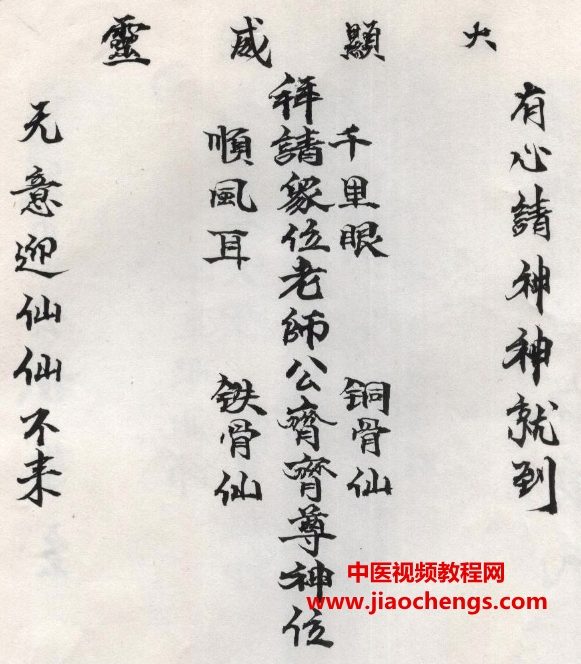 大顯威靈
有心請神神就到
千里眼
铜骨仙
拜請衆位老師公齊齊尊神位
順風耳
铁骨仙
无意迎仙仙不来
中医视频教程网
www.jiaochengs.com